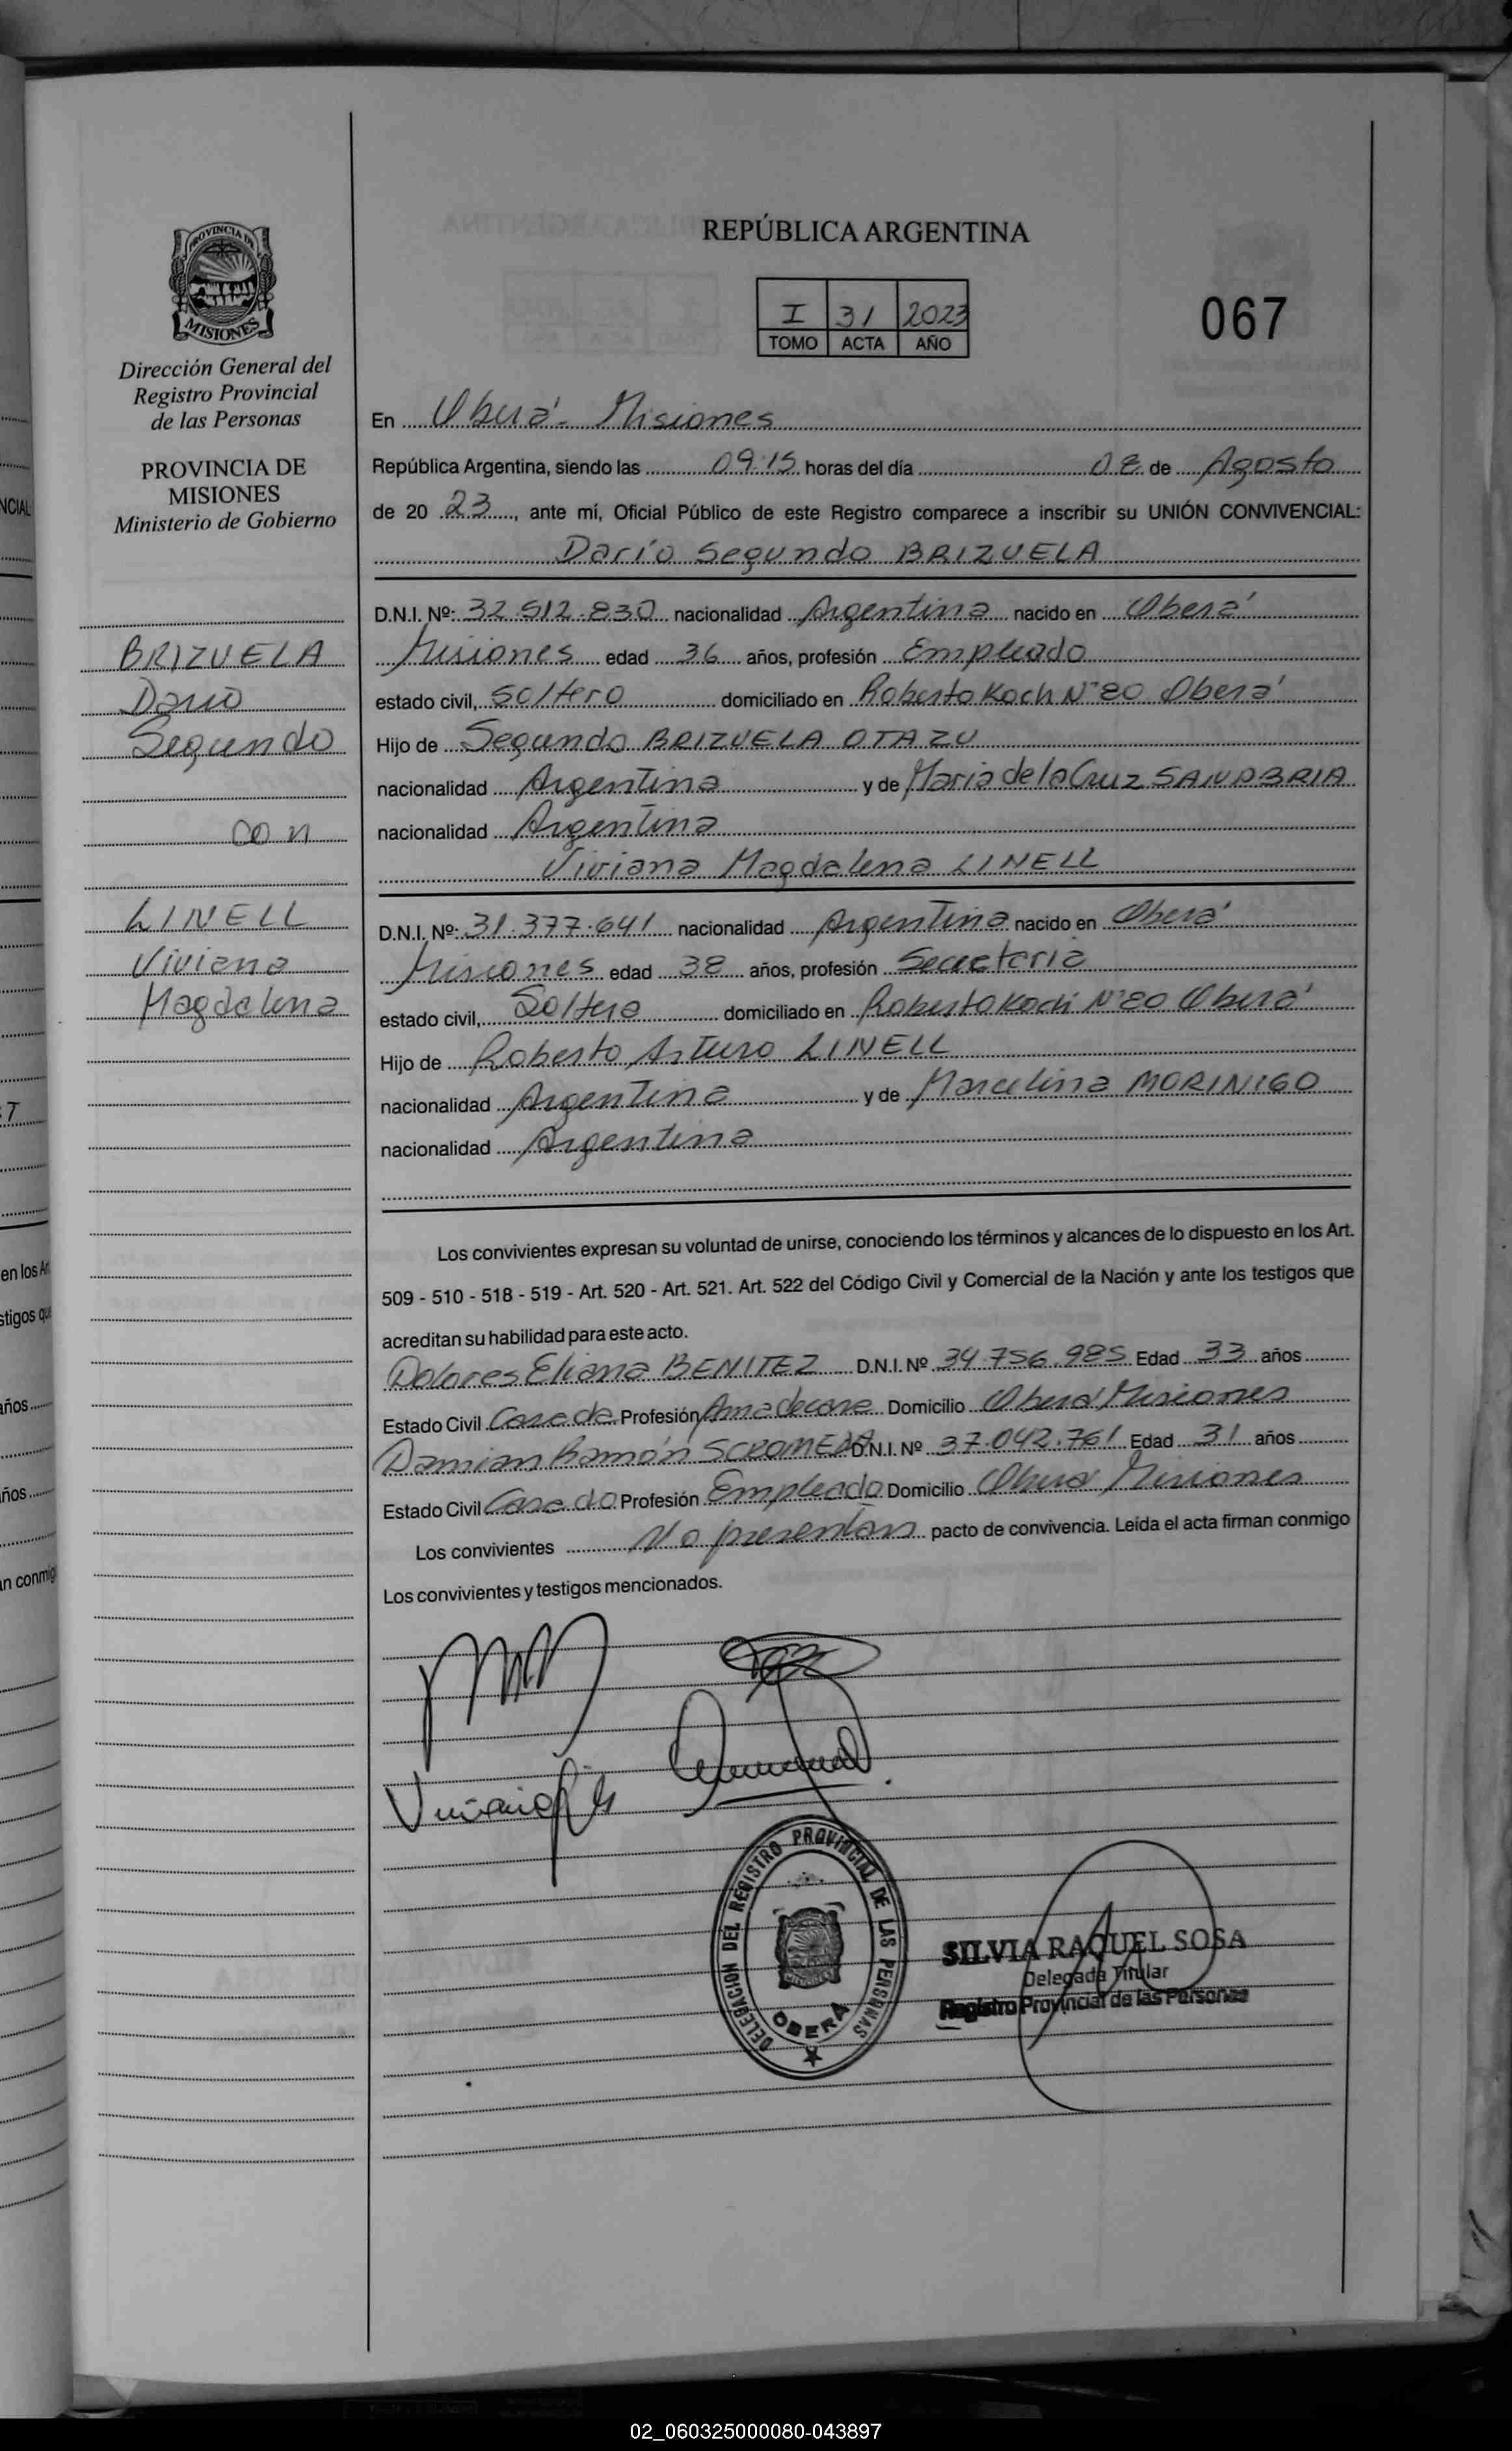 REPÚBLICA ARGENTINA
I 31 2023
TOMO ACTA AÑO
067
PROVINCIA DE
MISIONES
Dirección General del
Registro Provincial
de las Personas
PROVINCIA DE
MISIONES
Ministerio de Gobierno
BRIZUELA
Dario
Segundo
con
LINELL
Viviana
Magdalena
En Oberá - Misiones
República Argentina, siendo las 09:15 horas del día 08 de Agosto
de 20 23, ante mí, Oficial Público de este Registro comparece a inscribir su UNIÓN CONVIVENCIAL:
Darío Segundo BRIZUELA
D.N.I. Nº: 32.512.830 nacionalidad Argentina nacido en Oberá
Misiones edad 36 años, profesión Empleado
estado civil, Soltero domiciliado en Roberto Koch Nº 80 Oberá
Hijo de Segundo BRIZUELA OTAZU
nacionalidad Argentina y de Maria de la Cruz SANABRIA
nacionalidad Argentina
Viviana Magdalena LINELL
D.N.I. Nº: 31.377.641 nacionalidad Argentina nacido en Oberá
Misiones edad 38 años, profesión Secretaria
estado civil, Soltera domiciliado en Roberto Koch Nº 80 Oberá
Hijo de Roberto Arturo LINELL
nacionalidad Argentina y de Marcelina MORINIGO
nacionalidad Argentina
Los convivientes expresan su voluntad de unirse, conociendo los términos y alcances de lo dispuesto en los Art.
509 - 510 - 518 - 519 - Art. 520 - Art. 521. Art. 522 del Código Civil y Comercial de la Nación y ante los testigos que
acreditan su habilidad para este acto.
Dolores Eliana BENITEZ D.N.I. Nº 34.756.985 Edad 33 años
Estado Civil Casada Profesión Ama de casa Domicilio Oberá Misiones
Damian Ramón D.N.I. Nº 37.042.761 Edad 31 años
Estado Civil Casado Profesión Empleado Domicilio Oberá Misiones
Los convivientes No presentan pacto de convivencia. Leída el acta firman conmigo
Los convivientes y testigos mencionados.
DELEGACION DEL REGISTRO PROVINCIAL DE LAS PERSONAS
OBERA
SILVIA RAQUEL SOSA
Delegada Titular
Registro Provincial de las Personas
02_060325000080-043897